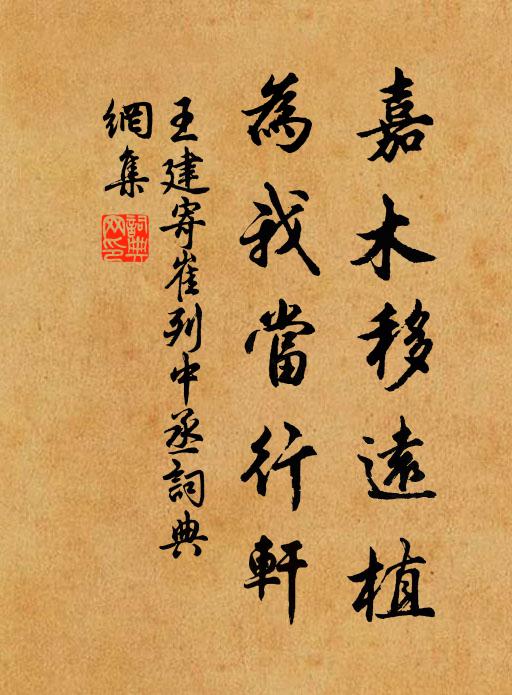 嘉木移遠植
為我當行軒
王建寄崔列中丞詞典
網集
詞典網印